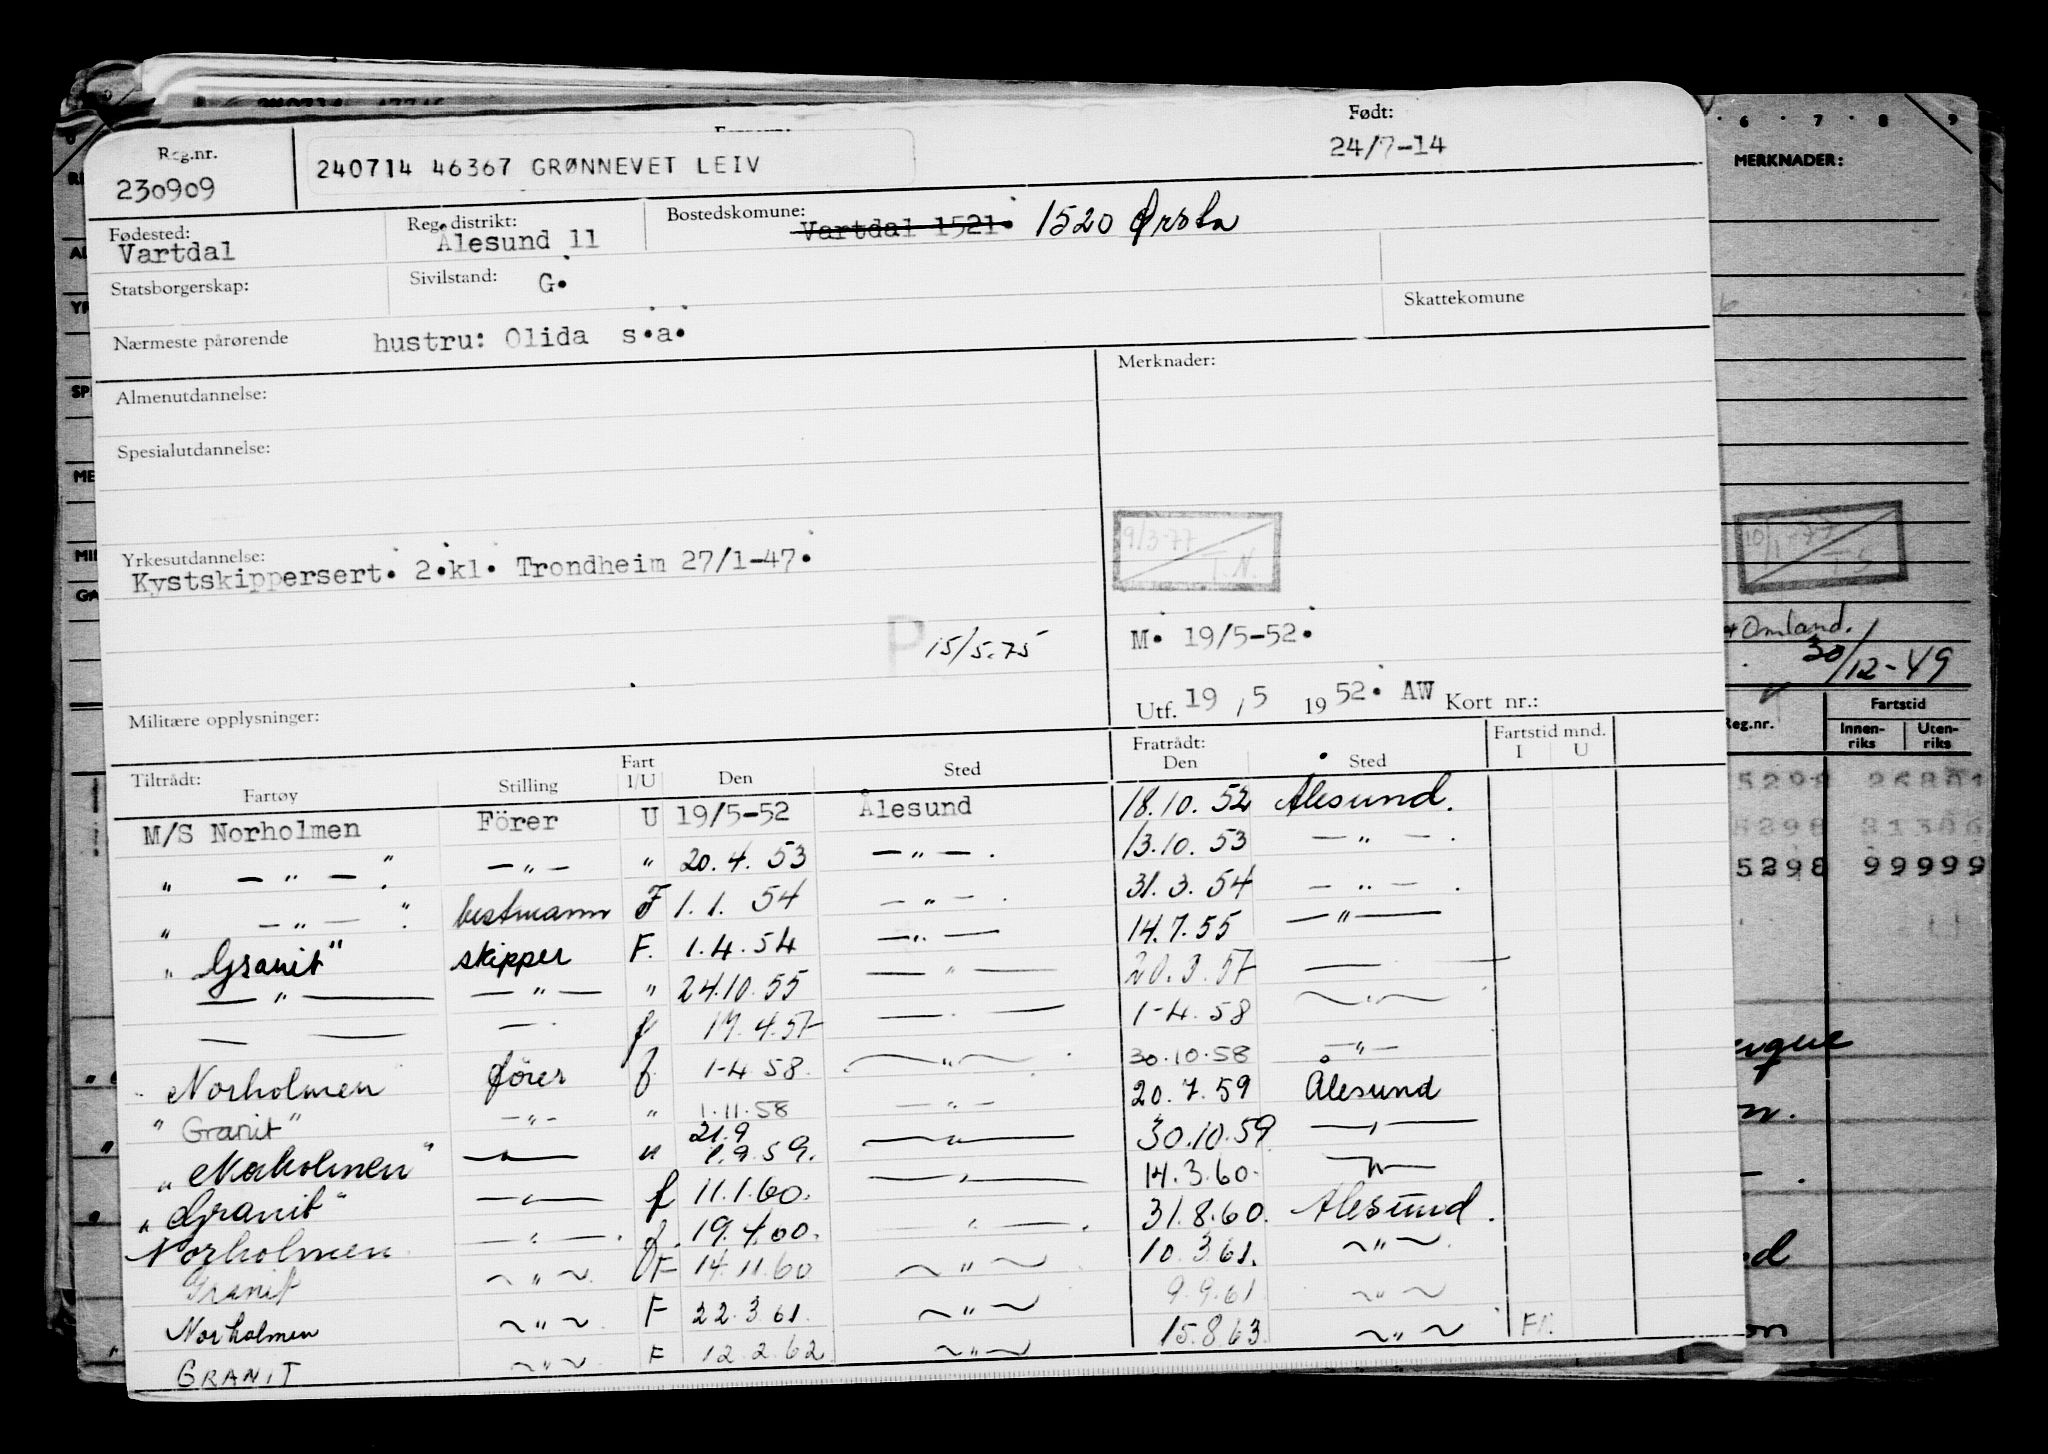 Født:
Reg.nr.
24/7-14
230909
240714 46367 GRØNNEVET LEIV
MERKNADER:
Fødested:
Reg. distrikt:
Bostedskomune:
Vartdal
Ålesund 11
Vartdal 1521. 1520 Ørsta
Statsborgerskap:
Sivilstand: G.
Skattekomune
Nærmeste pårørende
hustru: Olida s.a.
Almenutdannelse:
Merknader:
Spesialutdannelse:
9/3-77
T.N.
Yrkesutdannelse:
Kystskippersert. 2.kl. Trondheim 27/1-47.
P 15/5.75
M. 19/5-52.
Omland.
30/12-49
Militære opplysninger:
Utf. 19 / 5 1952. AW Kort nr.:
Tiltrådt:
Fratrådt:
Fartstid mnd.
Fartøy Stilling Fart I/U Den Sted Den Sted I U
Reg.nr. Fartstid
Innen-riks Uten-riks
M/S Norholmen Förer U 19/5-52 Ålesund 18.10.52 Ålesund.
" — " — " — " — " 20.4.53 — " — . 13.10.53 — " — .
" — " — " bestmann F 1.1.54 — " — . 31.3.54 — " — .
" Granit" skipper F. 1.4.54 — " — 14.7.55 — " —
— " — — " — " 24.10.55 — " — 20.3.57 —
— — — . f 17.4.57 — . — 1-4.58 ~ " ~
Norholmen förer f. 1-4 58. ~ " ~ . 30.10.58 — " —
" Granit" — " — " 1.11.58 — " — 20.7.59 Ålesund
21.9
" — " — " 1.9.59. — " — 30.10.59 — " —
" Granit" — " — f 11.1.60. — " — 14.3.60. — " —
Norholmen — " — . f. 19.4.60. " — . 31.8.60. Ålesund.
Granit ~ " ~ . F 14.11.60 ~ " ~ 10.3.61. ~ " ~ .
Norholmen ~ " ~ . F 22.3.61. ~ " ~ 9.9.61 ~ " ~
GRANIT ~ " ~ . F 12.2.62 ~ " ~ 15.8.63. ~ " ~ F
5298 99999